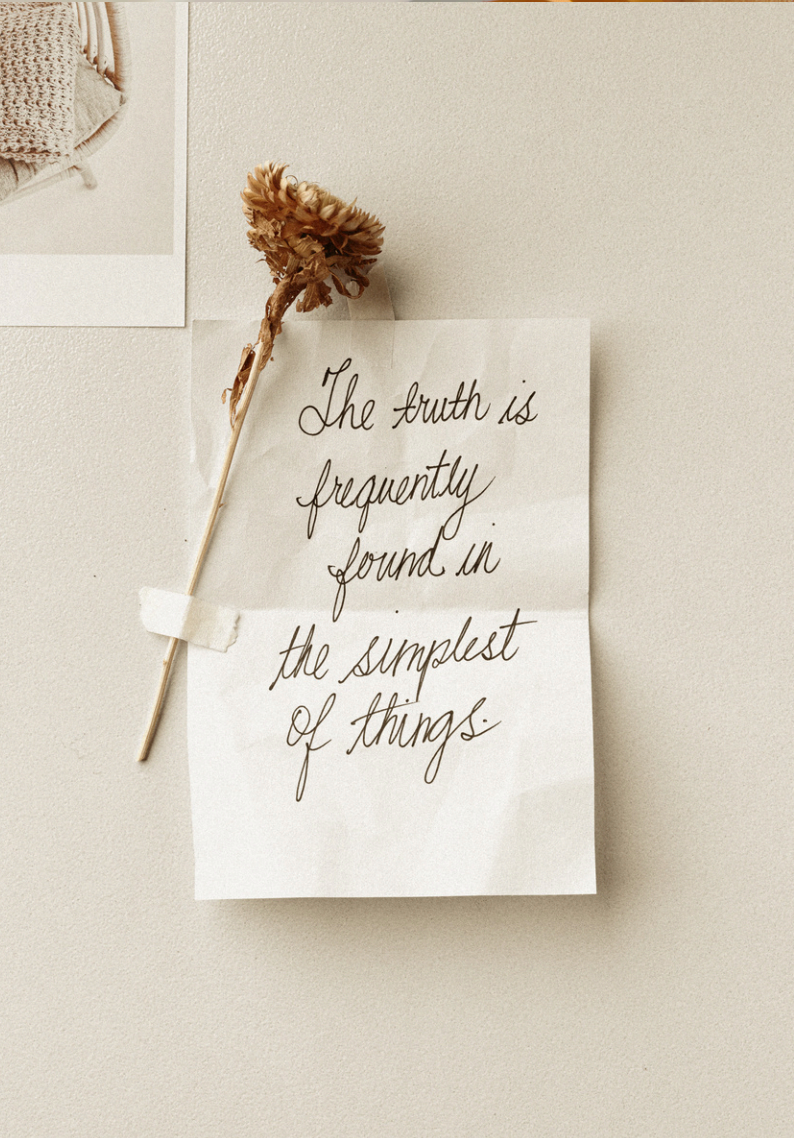 The truth is
frequently
found in
the simplest
of things.